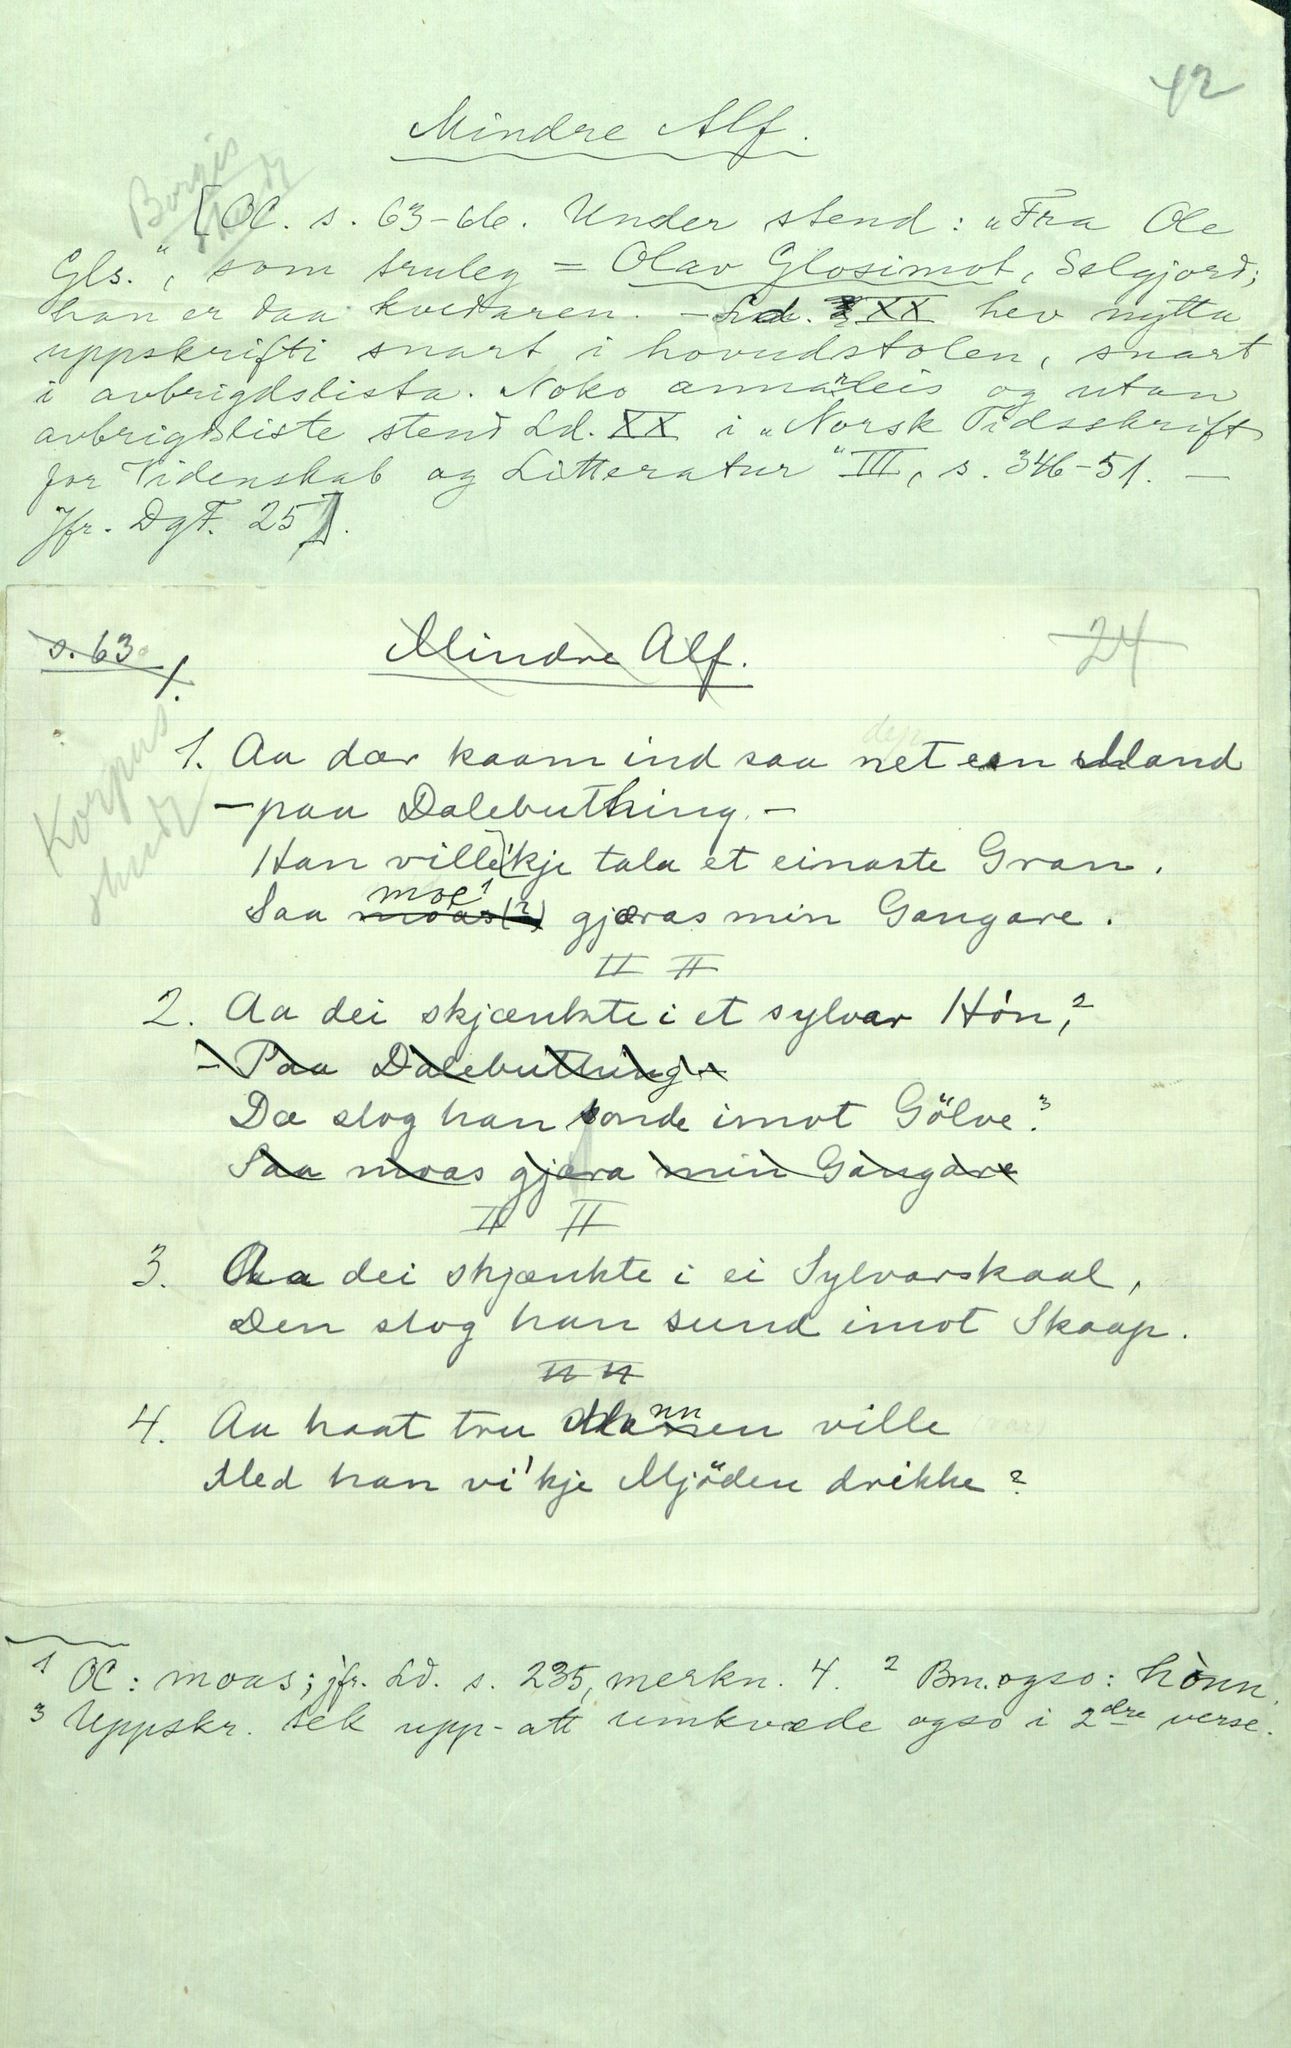 42
Mindre Alf.
Borgis
[OC. s. 63-66. Under stend: "Fra Ole
Gls.", som truleg = Olav Glosimot, Selgjord;
han er daa kvedaren. - Ld. XX hev nytta
uppskrifti snart i hovudstolen, snart
i avbrigdslista. Noko annarleis og utan
avbrigdsliste stend Ld. XX i "Norsk Tidsskrift
for Videnskab og Litteratur" III, s. 346-51. -
Jfr. DgF. 25].
s. 63.
1.
Mindre Alf.
24
Korpus
1. Aa dær kaam ind saa net ein Mand
- paa Dalebuthing. -
Han ville'kje tala et einaste Gran.
Saa moas(?) moe¹ gjæras min Gangare.
II II
2. Aa dei skjænkte i et sylvar Hón,²
- Paa Dalebuthing -
Dæ slog han sonde imot Gölve.³
Saa moas gjæra min Gangare
II II
3. Aa dei skjænkte i ei Sylvarskaal,
Den slog han sund imot Skaap.
II II
4. Aa haat tru Mannen ville
Med han vi'kje Mjöden drikke?
¹ OC: moas; jfr. Ld. s. 235, merkn. 4. ² Bm. ogso: hònn.
³ Uppskr. tek upp-att umkvæde ogso i 2dre verse.